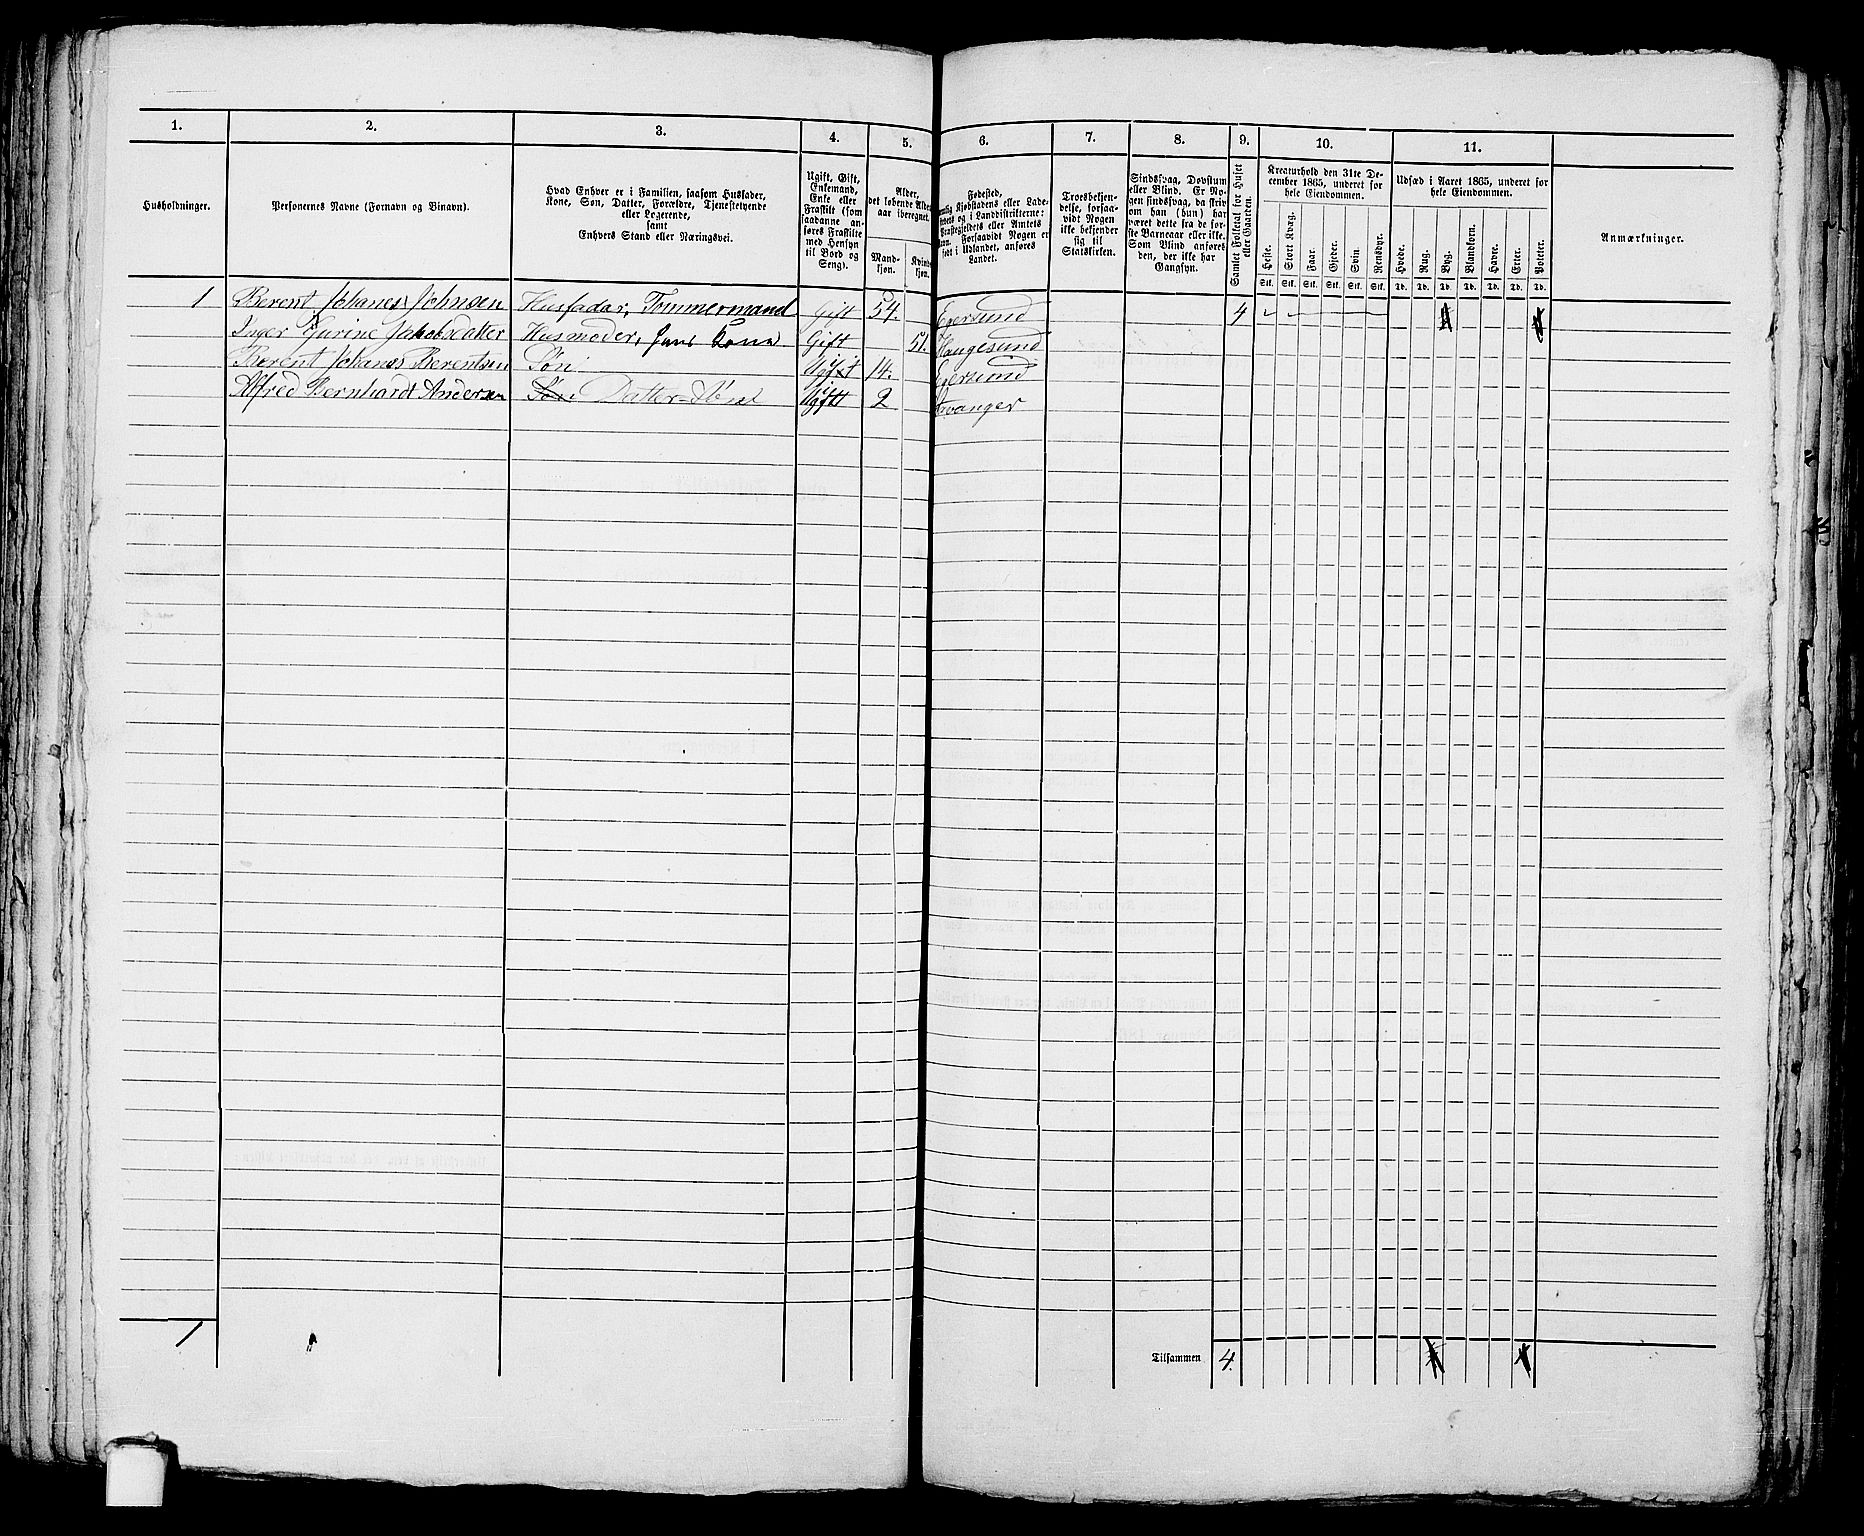 1. 2. 3. 4. 5. 6. 7. 8. 9. 10. 11.
Husholdninger.
Personernes Navne (Fornavn og Binavn).
Hvad Enhver er i Familien, saasom Husfader,
Kone, Søn, Datter, Forældre, Tjenestetyende
eller Logerende,
samt
Enhvers Stand eller Næringsvei.
Ugift, Gift,
Enkemand,
Enke eller
Fraskilt (som
saadanne an-
føres Fraskilte
med Hensyn
til Bord og
Seng).
Alder,
det løbende Alders-
aar iberegnet.
Mand-
kjøn.
Kvinde-
kjøn.
Fødested,
Kjøbstadens eller Lade-
og i Landdistrikterne:
Præstegjeldets eller Amtets
Navn. Forsaavidt Nogen er
født i Udlandet, anføres
Landet.
Troesbekjen-
delse, forsaa-
vidt Nogen
ikke bekjender
sig til
Statskirken.
Sindssvag, Døvstum
eller Blind. Er No-
gen sindssvag, da skriv
om han (hun) har
været dette fra de før-
ste Barneaar eller ikke.
Som Blind anføres
den, der ikke har
Gangsyn.
Samlet Folketal for Huset
eller Gaarden.
Kreaturhold den 31te De-
cember 1865, underet for
hele Eiendommen.
Heste. Stort Kvæg. Faar. Gjeder. Svin. Rensdyr.
Stk. Stk. Stk. Stk. Stk. Stk.
Udsæd i Aaret 1865, underet for
hele Eiendommen.
Hvede. Rug. Byg. Blandkorn. Havre. Erter. Poteter.
Td. Td. Td. Td. Td. Td. Td.
Anmærkninger.
1 Berent Johanes Johnsen Husfader, Tømmermand Gift 54. Egersund 4
Inger Gurine Jakobsdatter Husmoder, hans Kone Gift 51. Haugesund
Berent Johanes Berentsen Søn Ugift 14. Egersund
Alfred Bernhardt Andersen Søn Datter-Søn Ugift 2 Stavanger
1
Tilsammen 4.